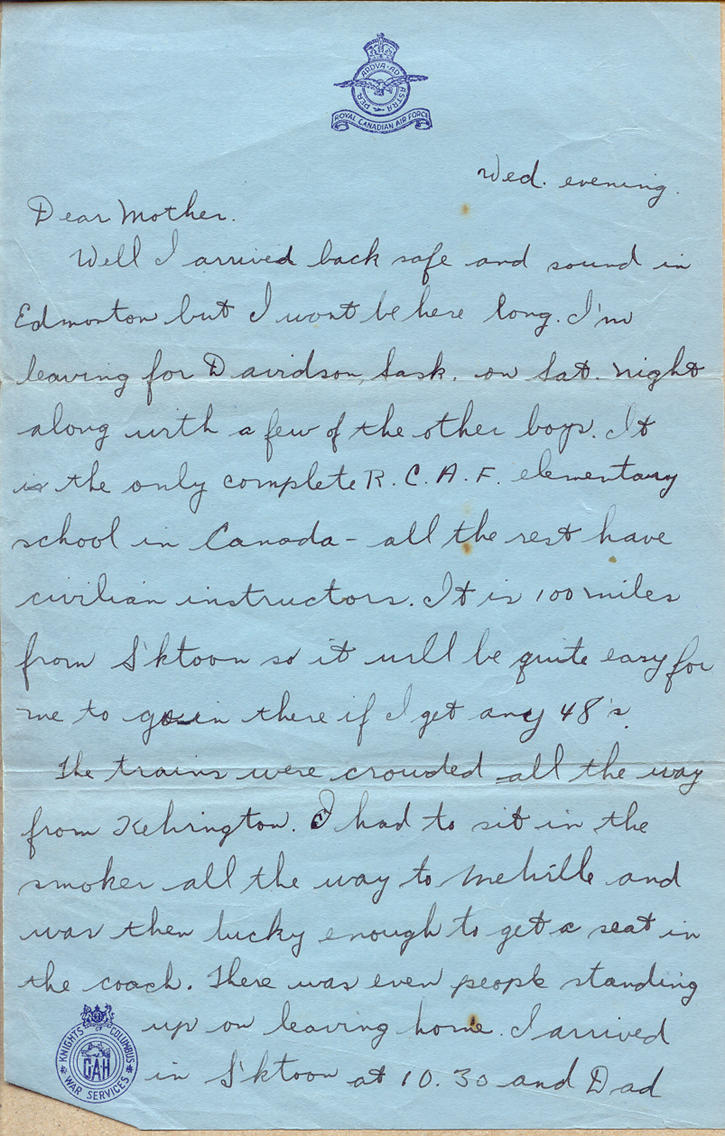 PER ARDVA AD ASTRA
ROYAL CANADIAN AIR FORCE
Wed. evening.
Dear Mother.
Well I arrived back safe and sound in
Edmonton but I wont be here long. I'm
leaving for Davidson, Sask. on Sat. night
along with a few of the other boys. It
is the only complete R.C.A.F. elementary
school in Canada - all the rest have
civilian instructors. It is 100 miles
from S'ktoon so it will be quite easy for
me to go in there if I get any 48's.
The trains were crowded all the way
from Kehrington. I had to sit in the
smoker all the way to Melville and
was then lucky enough to get a seat in
the coach. There was even people standing
up on leaving home. I arrived
in S'ktoon at 10.30 and Dad
KNIGHTS OF COLUMBUS
CAH
WAR SERVICES